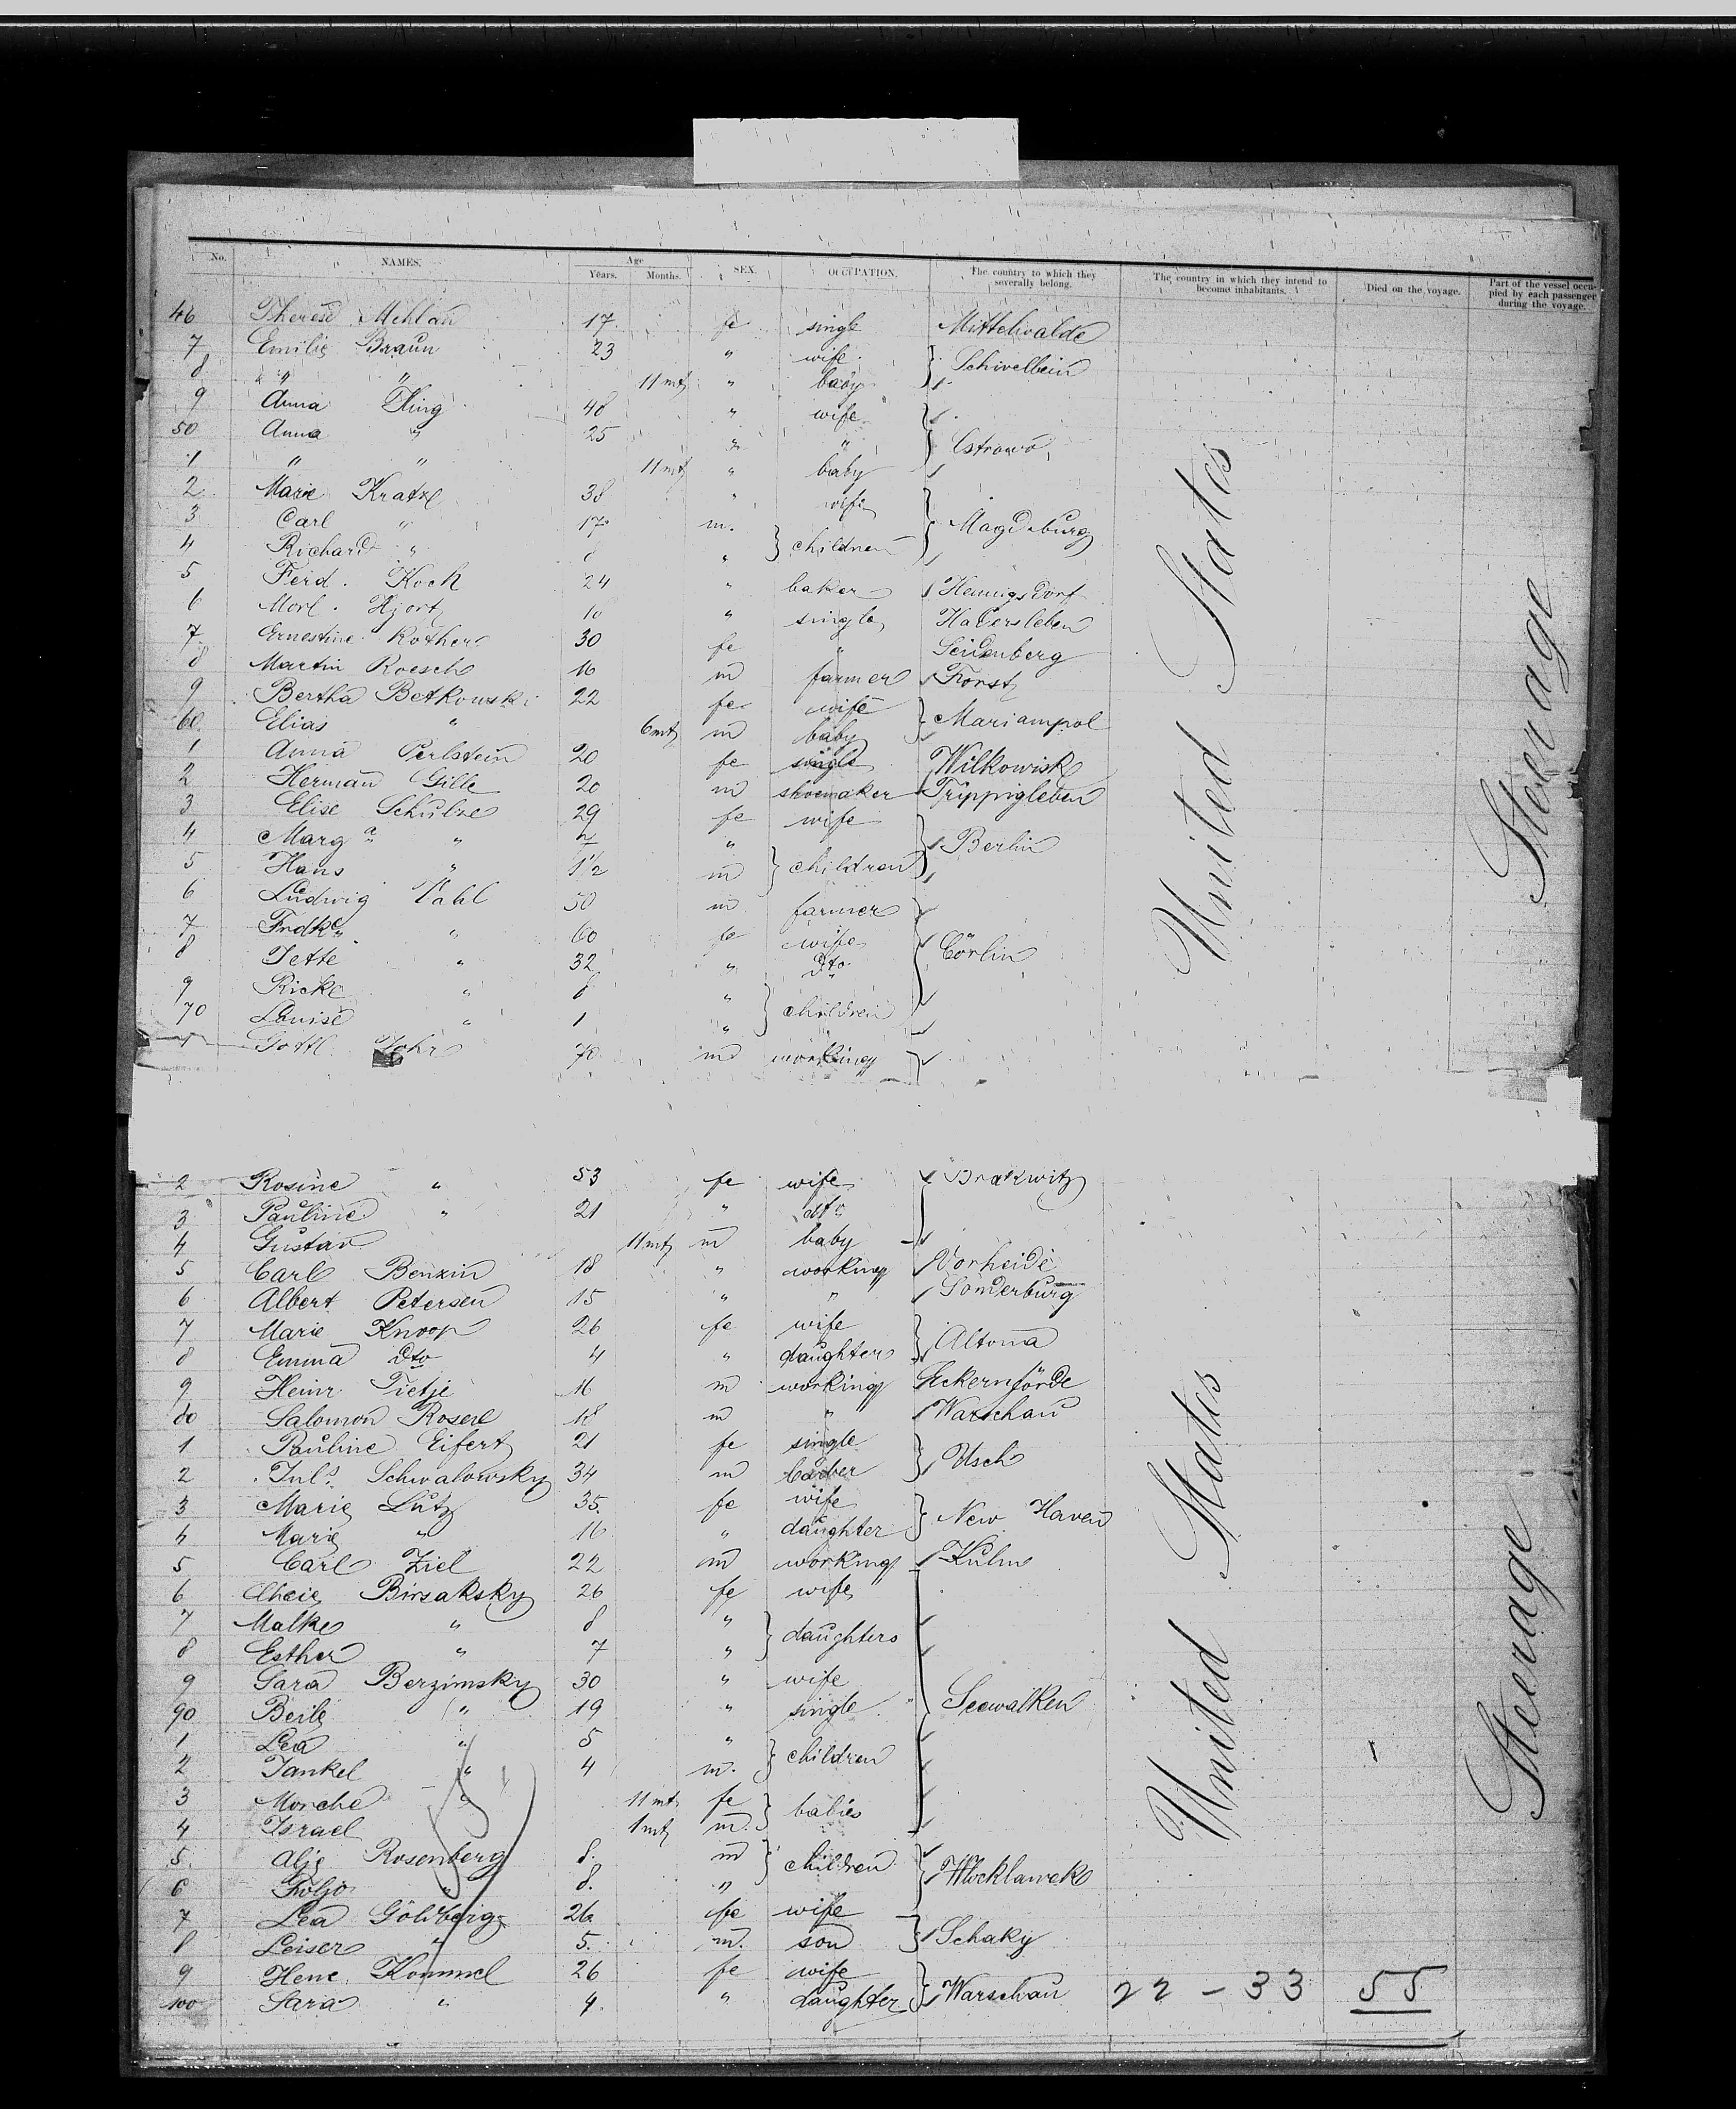 No. NAMES. Age Years. Months. SEX. OCCUPATION. The country to which they severally belong. The country in which they intend to become inhabitants. Died on the voyage. Part of the vessel occupied by each passenger during the voyage.
46 Therese Mehlan 17 fe single Mittelwalde
7 Emilie Braun 23 " wife Schivelbein
8 " " 11 mt " baby
9 Anna 48 " wife
50 Anna " 25 " " Ostrowo
1 " " 11 mt " baby
2 Marie Kratze 38 " wife
3 Carl " 17 m. children Magdeburg
4 Richard " 8 "
5 Ferd. Koch 24 " baker Hennigsdorf
6 Morl. Hjort 10 " single Hadersleben
7 Ernestine Rother 30 fe " Seidenberg
8 Martin Roesch 16 m farmer Forst
9 Bertha Betkowski 22 fe wife Mariampol
60 Elias " 6 mt m baby
1 Anna Perlstein 20 fe single Wilkowisk
2 Herman Gille 20 m shoemaker Trippigleben
3 Elise Schulze 29 fe wife
4 Marga " 7 " children Berlin
5 Hans " 1 1/2 m
6 Ludwig Vahl 50 m farmer
7 Fredke " 60 fe wife Cörlin
8 Jette " 32 " Dto
9 Ricke " 8 " children
70 Louise " 1 "
1 Gottl. Fohr 70 m working
2 Rosine " 53 fe wife Brakwitz
3 Pauline " 21 " dto
4 Gustav 11 mt m baby
5 Carl Benzin 18 " working Vorheide
6 Albert Petersen 15 " " Sonderburg
7 Marie Knoop 26 fe wife Altona
8 Emma Dto 4 " daughter
9 Heinr. Tietje 16 m working Eckernförde
80 Salomon Rosen 18 m " Warschau
1 Pauline Eifert 21 fe single Usch
2 Juls. Schwalowsky 34 m
3 Marie Lutz 35 fe wife New Haven
4 Marie " 16 " daughter
5 Carl Ziel 22 m working Kulm
6 Birsaksky 26 fe wife
7 Malke " 8 " daughters
8 Esther " 7 "
9 Sara Berzimsky 30 " wife
90 Beile " 19 " single Seewalken
1 Lea " 5 " children
2 Jankel " 4 m.
3 Morche " 11 mt fe babies
4 Israel 1 mt m.
5 Alje Rosenberg 8. m children Wlocklawek
6 Foljo " 8. "
7 Lea Goldberg 26 fe wife Schaky
8 Leiser " 5. m. son
9 Hene Kommel 26 fe wife
100 Sara " 4. " daughter Warschau 22 - 33 55
United States
Steerage
United States
Steerage